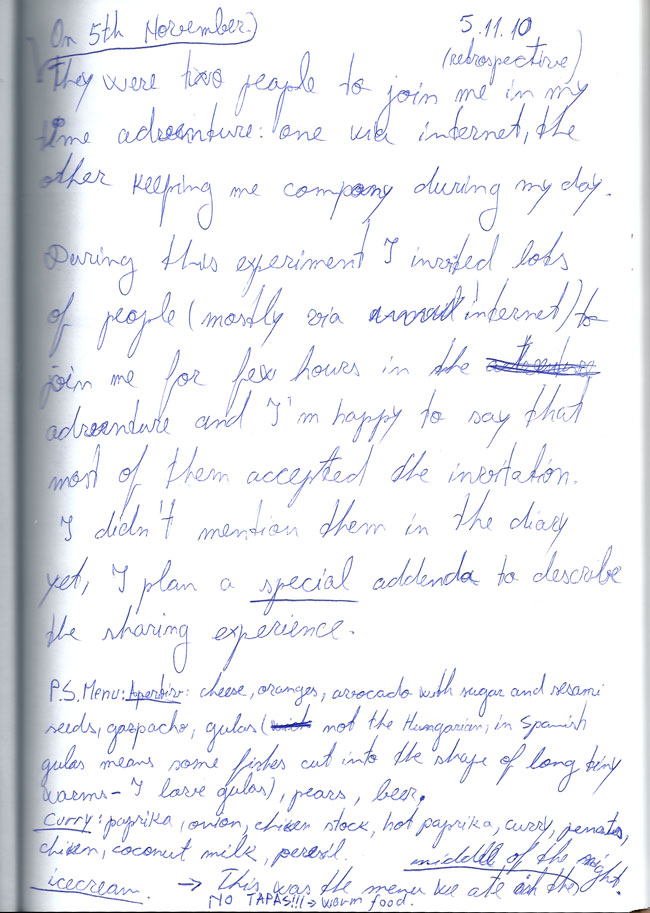 On 5th November:) 5.11.10
(retrospective)
They were two people to join me in my
time adventure: one via internet, the
other keeping me company during my day.
During this experiment I invited lots
of people (mostly via internet) to
join me for few hours in the
adventure and I'm happy to say that
most of them accepted the invitation.
I didn't mention them in the diary
yet, I plan a special addenda to describe
the sharing experience.
P.S. Menu: Aperitiv: cheese, oranges, avocado with sugar and sesami
seeds, gazpacho, gulas ( not the Hungarian, in Spanish
gulas means some fishes cut into the shape of long tiny
warms - I love gulas), pears, beer.
Curry: paprika, onion, chiken stock, hot paprika, curry, penats,
chiken, coconut milk, peresil. middle of the night.
icecream. → This was the menu we ate in the
NO TAPAS!!! → warm food.